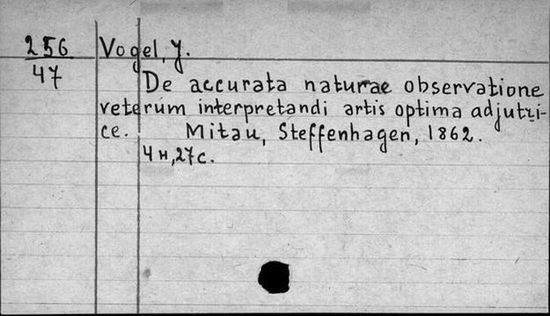 256 Vogel, J.
47
De accurata naturae observatione
veterum interpretandi artis optima adjutri-
ce. Mitau, Steffenhagen, 1862.
4н,27с.